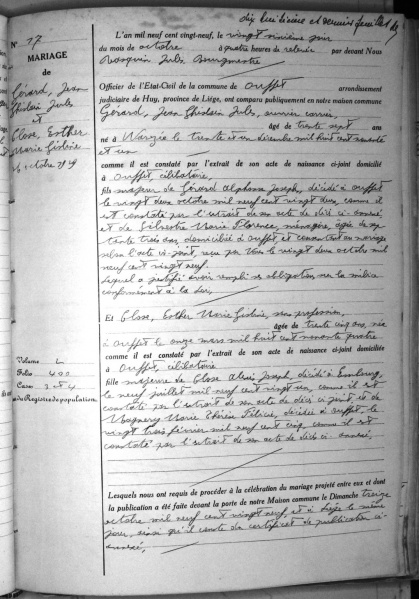 dix huitième et dernier feuillet
N° 17
MARIAGE
de
Gérard, Jean
Ghislain Jules
et
Close, Esther
Marie Ghislaine
octobre 1929
L'an mil neuf cent vingt-neuf, le vingt sixième jour
du mois de octobre à quatre heures de relevée par devant Nous
Jules Bourgmestre
Officier de l'Etat-Civil de la commune de Ouffet arrondissement
judiciaire de Huy, province de Liége, ont comparu publiquement en notre maison commune
Gérard, Jean Ghislain Jules, ouvrier carrier,
âgé de trente sept ans
né à Warzée le trente et un décembre mil huit cent nonante
et un
comme il est constaté par l'extrait de son acte de naissance ci-joint domicilié
à Ouffet, célibataire,
fils majeur de Gérard Alphonse Joseph, décédé à Ouffet
le vingt deux octobre mil neuf cent vingt deux, comme il
est constaté par l'extrait de son acte de décès ci-annexé
et de Silvestre Marie Florence, ménagère, âgée de sep
tante trois ans, domiciliée à Ouffet et consentant au mariage
selon l'acte ci-joint, reçu par Nous le vingt deux octobre mil
neuf cent vingt neuf.
Lequel a justifié avoir rempli ses obligations sur la milice
conformément à la loi,
Et Close, Esther Marie Ghislaine, sans profession,
âgée de trente cinq ans, née
à Ouffet le onze mars mil huit cent nonante quatre
comme il est constaté par l'extrait de son acte de naissance ci-joint domiciliée
à Ouffet, célibataire
fille majeure de Close Alexis Joseph, décédé à
le neuf juillet mil neuf cent vingt un, comme il est
constaté par l'extrait de son acte de décès ci-joint et de
Marie Thérèse Félicie, décédée à Ouffet, le
vingt trois février mil neuf cent cinq comme il est
constaté par l'extrait de son acte de décès ci-annexé,
Volume L
Folio 400
Cases 3 et 4
du Registre de population
Lesquels nous ont requis de procéder à la célébration du mariage projeté entre eux et dont
la publication a été faite devant la porte de notre Maison commune le Dimanche treize
octobre mil neuf cent vingt neuf, et à Liège le même
jour, ainsi qu'il conste du certificat de publication ci-
annexé,